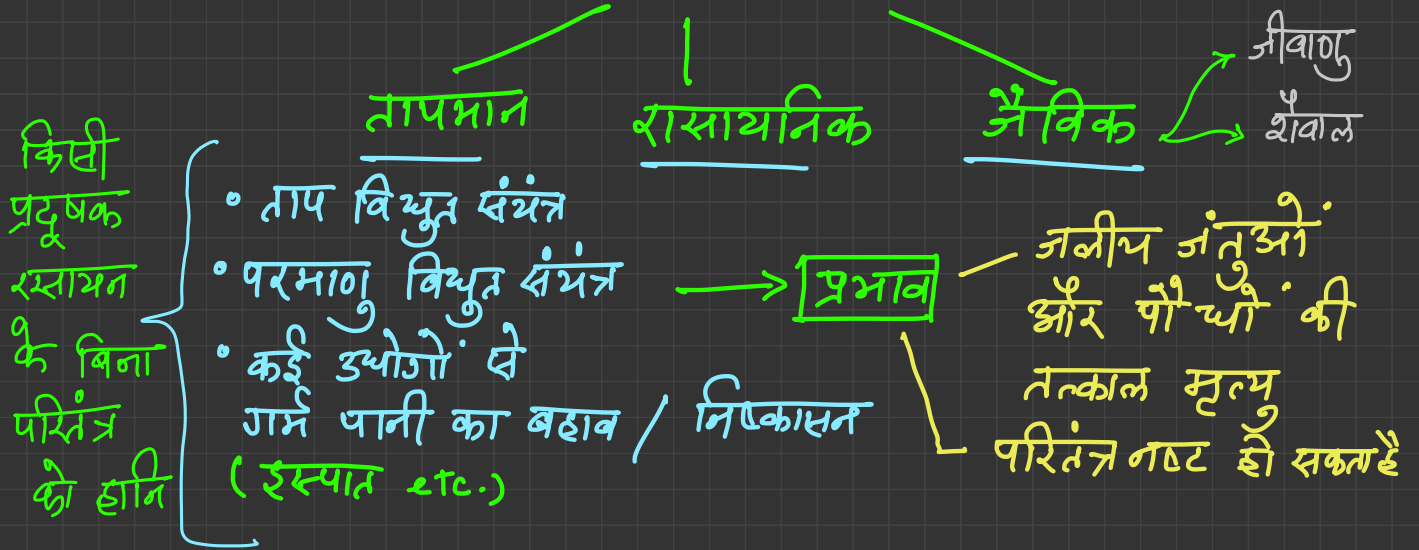 जीवाणु
शैवाल
तापमान रासायनिक जैविक
किसी
प्रदूषक
रसायन
के बिना
परितंत्र
को हानि
• ताप विद्युत संयंत्र
• परमाणु विद्युत संयंत्र
• कई उद्योगों से
गर्म पानी का बहाव / निष्कासन
(इस्पात etc.)
प्रभाव
जलीय जंतुओं
और पौधों की
तत्काल मृत्यु
परितंत्र नष्ट हो सकता है